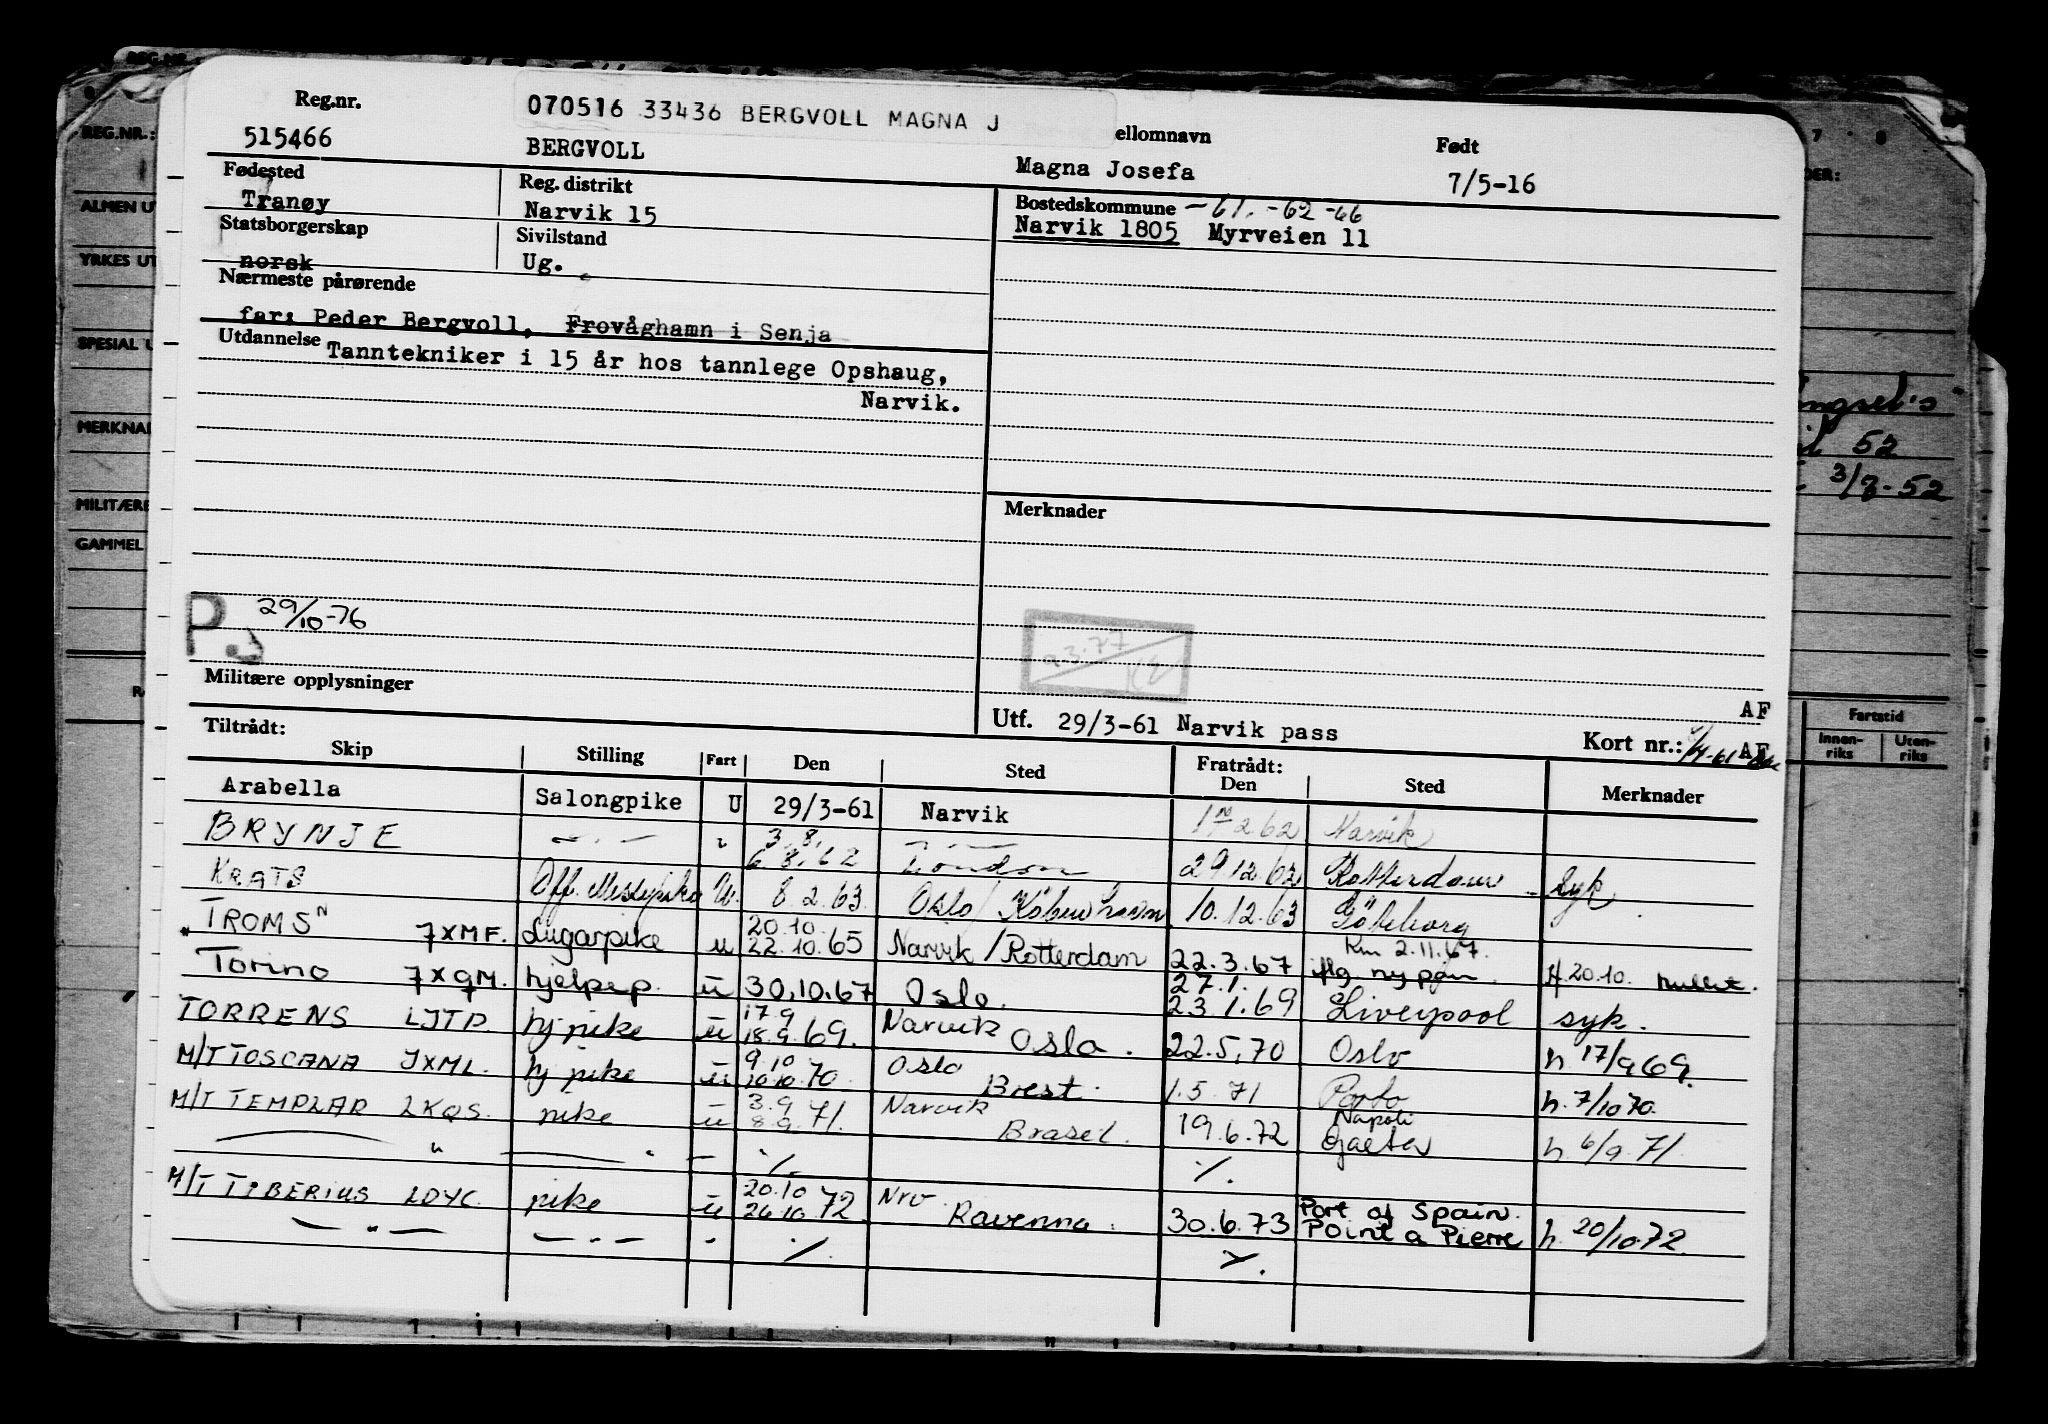 Reg.nr.
070516 33436 BERGVOLL MAGNA J
ellomnavn
Født
515466
BERGVOLL
Magna Josefa
7/5-16
Fødested
Reg. distrikt
Tranøy
Narvik 15
Bostedskommune -61.-62-66
Narvik 1805 Myrveien 11
Statsborgerskap
Sivilstand
norsk
Ug.
Nærmeste pårørende
far: Peder Bergvoll, Frovåghamn i Senja
Utdannelse
Tanntekniker i 15 år hos tannlege Opshaug,
Narvik.
Merknader
P
29/10-76
Militære opplysninger
AF
Utf. 29/3-61 Narvik pass
Kort nr.: AF
Tiltrådt:
Skip Stilling Fart Den Sted Fratrådt: Den Sted Merknader
Arabella Salongpike U 29/3-61 Narvik 2 62 Narvik
BRYNJE — " — " 3.8. 6 8.62 — " — London 29 12.62 Rotterdam Syk
KRATS Off. Messepike U. 8.2.63. Oslo/København 10.12.63 Göteborg
TROMS JXMF. Lugarpike u 20.10 22.10.65 Narvik/Rotterdam 22.3.67 Km 2.11.67.
Torino JXQM. hjelpep. u 30.10.67 Oslo. 27.1. 23.1.69 Liverpool syk.
TORRENS LJTD. hj pike u 17.9 18.9.69. Narvik Oslo. 22.5.70 Oslo h. 17/9 69.
M/T TOSCANA JXML. hj pike u 9.10 10.10.70. Oslo Brest. 1.5.71 Porto h. 7/10 70.
M/T TEMPLAR LKQS. pike u 3.9 8.9.71. Narvik Brasil. 19.6.72 Napoli Gaeta h. 6/9.71.
" " - ./. ./.
M/T TIBERIUS LDYC. pike u 20.10 26.10.72. Nrv Ravenna. 30.6.73 Port of Spain. Point a Pierre h. 20/10.72.
— " — — " — - ./. ./.
REG.NR.:
ALMEN UT
YRKES UT
SPESIAL U
MERKNA
MILITÆRE
GAMMEL
7 . 8
52
3/7-52
Fartstid
Innen-riks
Uten-riks